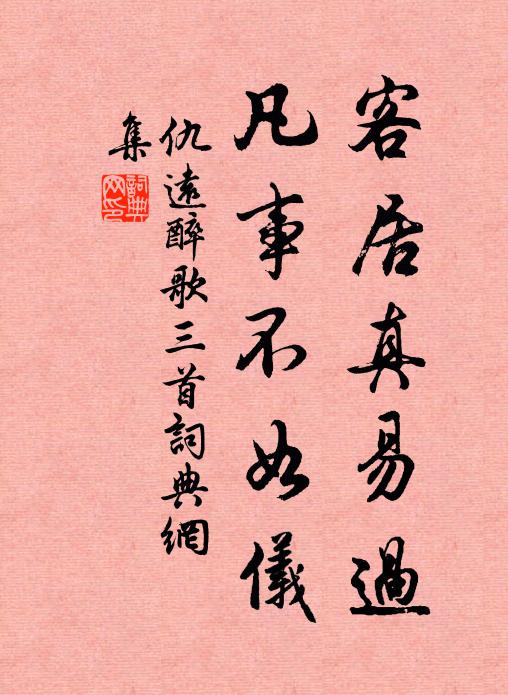 客居真易過
凡事不如儀
仇遠醉歌三首詞典網
集
詞典
网印